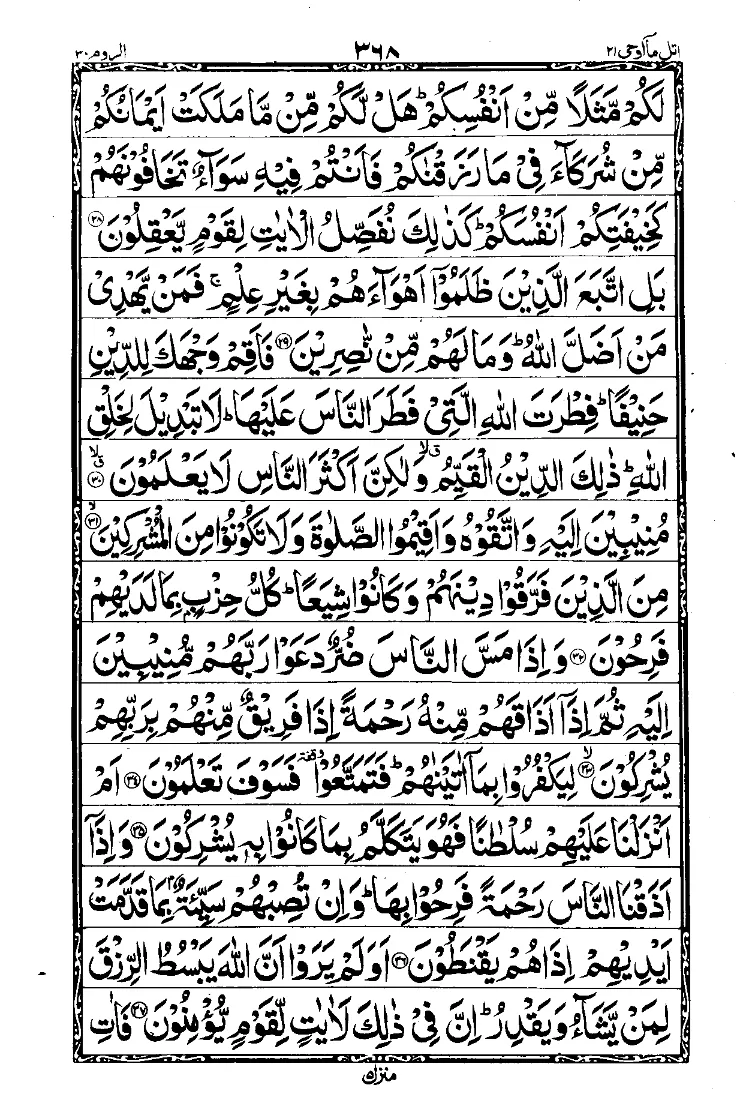 اتل ماۤ اوحی ٢١ ٣٦٨ الروم ٣٠
لَكُمْ مَّثَلًا مِّنْ اَنْفُسِكُمْ ؕ هَلْ لَّكُمْ مِّنْ مَّا مَلَكَتْ اَيْمَانُكُمْ
مِّنْ شُرَكَآءَ فِىْ مَا رَزَقْنٰكُمْ فَاَنْتُمْ فِيْهِ سَوَآءٌ تَخَافُوْنَهُمْ
كَخِيْفَتِكُمْ اَنْفُسَكُمْ ؕ كَذٰلِكَ نُفَصِّلُ الْاٰيٰتِ لِقَوْمٍ يَّعْقِلُوْنَ ﴿٢٨﴾
بَلِ اتَّبَعَ الَّذِيْنَ ظَلَمُوْۤا اَهْوَآءَهُمْ بِغَيْرِ عِلْمٍ ۚ فَمَنْ يَّهْدِىْ
مَنْ اَضَلَّ اللّٰهُ ؕ وَمَا لَهُمْ مِّنْ نّٰصِرِيْنَ ﴿٢٩﴾ فَاَقِمْ وَجْهَكَ لِلدِّيْنِ
حَنِيْفًا ؕ فِطْرَتَ اللّٰهِ الَّتِىْ فَطَرَ النَّاسَ عَلَيْهَا ؕ لَا تَبْدِيْلَ لِخَلْقِ
اللّٰهِ ؕ ذٰلِكَ الدِّيْنُ الْقَيِّمُ ۙ وَلٰكِنَّ اَكْثَرَ النَّاسِ لَا يَعْلَمُوْنَ ﴿٣٠﴾
مُنِيْبِيْنَ اِلَيْهِ وَاتَّقُوْهُ وَاَقِيْمُوا الصَّلٰوةَ وَلَا تَكُوْنُوْا مِنَ الْمُشْرِكِيْنَ ﴿٣١﴾
مِنَ الَّذِيْنَ فَرَّقُوْا دِيْنَهُمْ وَكَانُوْا شِيَعًا ؕ كُلُّ حِزْبٍۭ بِمَا لَدَيْهِمْ
فَرِحُوْنَ ﴿٣٢﴾ وَاِذَا مَسَّ النَّاسَ ضُرٌّ دَعَوْا رَبَّهُمْ مُّنِيْبِيْنَ
اِلَيْهِ ثُمَّ اِذَاۤ اَذَاقَهُمْ مِّنْهُ رَحْمَةً اِذَا فَرِيْقٌ مِّنْهُمْ بِرَبِّهِمْ
يُشْرِكُوْنَ ﴿٣٣﴾ لِيَكْفُرُوْا بِمَاۤ اٰتَيْنٰهُمْ ؕ فَتَمَتَّعُوْا ٝ فَسَوْفَ تَعْلَمُوْنَ ﴿٣٤﴾ اَمْ
اَنْزَلْنَا عَلَيْهِمْ سُلْطٰنًا فَهُوَ يَتَكَلَّمُ بِمَا كَانُوْا بِهٖ يُشْرِكُوْنَ ﴿٣٥﴾ وَاِذَاۤ
اَذَقْنَا النَّاسَ رَحْمَةً فَرِحُوْا بِهَا ؕ وَاِنْ تُصِبْهُمْ سَيِّئَةٌۢ بِمَا قَدَّمَتْ
اَيْدِيْهِمْ اِذَا هُمْ يَقْنَطُوْنَ ﴿٣٦﴾ اَوَلَمْ يَرَوْا اَنَّ اللّٰهَ يَبْسُطُ الرِّزْقَ
لِمَنْ يَّشَآءُ وَيَقْدِرُ ؕ اِنَّ فِىْ ذٰلِكَ لَاٰيٰتٍ لِّقَوْمٍ يُّؤْمِنُوْنَ ﴿٣٧﴾ فَاٰتِ
منزل ٥